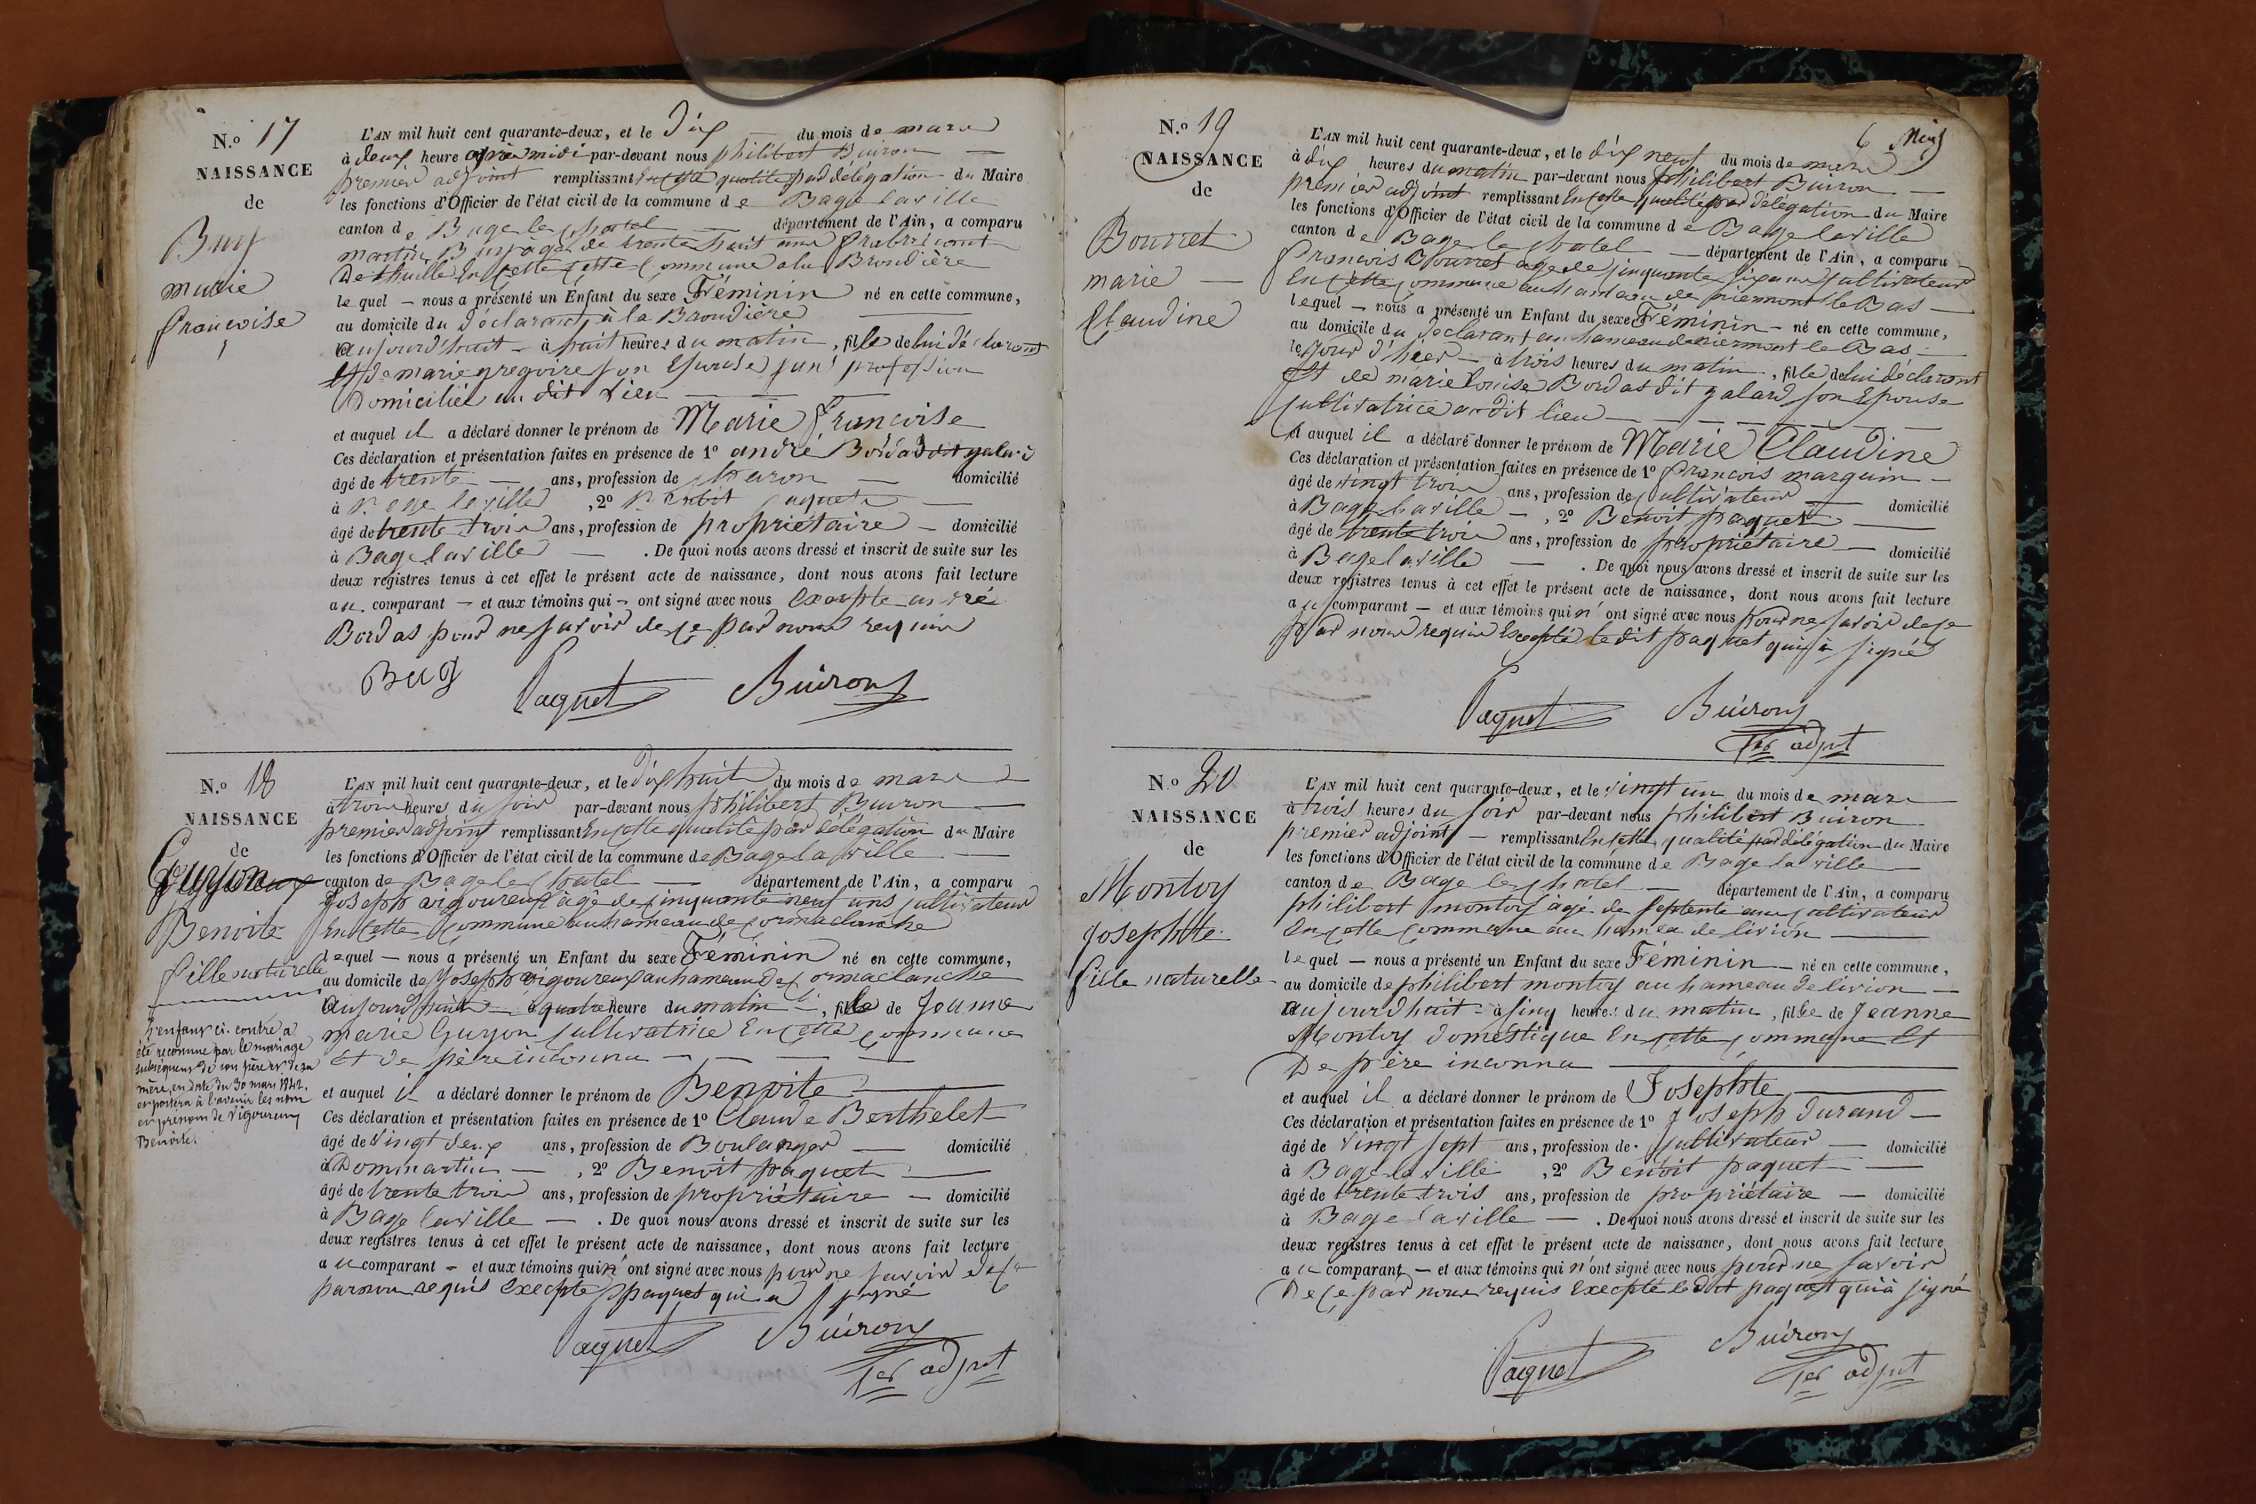 N.o 17
NAISSANCE
de
Buy
marie
francoise
L'AN mil huit cent quarante-deux, et le Dix du mois de mars
à deux heure après midi par-devant nous philibert Buiron
premier adjoint remplissant en cette qualité par délégation du Maire
les fonctions d'Officier de l'état civil de la commune de Bagé laville
canton de Bage le chatel département de l'Ain, a comparu
martin Buy agé de trente huit ans fabricant
De thuille en cette commune a la Broudière
lequel nous a présenté un Enfant du sexe Féminin né en cette commune,
au domicile du déclarant, à la Broudière
aujourd'huit à huit heures du matin, fille de lui déclarant
Et de marie gregoire son Epouse sans profession
Domiciliée au dit Lieu
et auquel il a déclaré donner le prénom de Marie francoise
Ces déclaration et présentation faites en présence de 1º andré Bordas dit galard
âgé de trente ans, profession de charon domicilié
à Bage laville, 2º Benoit paquet
âgé de trente trois ans, profession de propriétaire domicilié
à Bage laville. De quoi nous avons dressé et inscrit de suite sur les
deux registres tenus à cet effet le présent acte de naissance, dont nous avons fait lecture
au comparant et aux témoins qui ont signé avec nous Excepté andré
Bordas pour ne savoir de ce par nous requis
Buy Paquet Buiron
N.o 18
NAISSANCE
de
Guyon
Benoite
fille naturelle
L'enfant ci-contre a
été reconnue par le mariage
subséquent de son père et de sa
mère, en date du 30 mars 1842.
et portera à l'avenir les nom
et prénom de Vigoureux
Benoite.
L'AN mil huit cent quarante-deux, et le dix huit du mois de mars
à trois heures du soir par-devant nous philibert Buiron
premier adjoint remplissant en cette qualité par délégation du Maire
les fonctions d'Officier de l'état civil de la commune de Bage la ville
canton de Bage le chatel département de l'Ain, a comparu
joseph vigoureux âgé de cinquante neuf ans cultivateur
en cette commune au hameau de cormaclanche
lequel nous a présenté un Enfant du sexe Féminin né en cette commune,
au domicile de joseph vigoureux au hameau de cormaclanche
aujourd'huit à quatre heure du matin, fille de Jeanne
marie Guyon cultivatrice En cette commune
Et de père inconnu
et auquel il a déclaré donner le prénom de Benoite
Ces déclaration et présentation faites en présence de 1º Claude Berthelet
âgé de vingt deux ans, profession de Boulanger domicilié
à Dommartin, 2º Benoit paquet
âgé de trente trois ans, profession de propriétaire domicilié
à Bage laville. De quoi nous avons dressé et inscrit de suite sur les
deux registres tenus à cet effet le présent acte de naissance, dont nous avons fait lecture
au comparant et aux témoins qui n'ont signé avec nous pour ne savoir de ce
par nous requis excepte paquet qui a signé
Paquet Buiron
1er adjnt
6 Neuf
N.o 19
NAISSANCE
de
Bourret
marie
Claudine
L'AN mil huit cent quarante-deux, et le dix neuf du mois de mars
à dix heures du matin par-devant nous philibert Buiron
premier adjoint remplissant en cette qualité par délégation du Maire
les fonctions d'Officier de l'état civil de la commune de Bage laville
canton de Bage le chatel département de l'Ain, a comparu
francois Bourret agé de cinquante six ans cultivateur
en cette commune au hameau de piermont le Bas
lequel nous a présenté un Enfant du sexe Féminin né en cette commune,
au domicile du déclarant au hameau de niermont le Bas
le jour d'hier à trois heures du matin, fille de lui déclarant
Et de marie Louise Bordas dit galard son Epouse
cultivatrice audit lieu
et auquel il a déclaré donner le prénom de Marie Claudine
Ces déclaration et présentation faites en présence de 1º francois marguin
âgé de vingt trois ans, profession de cultivateur domicilié
à Bage laville, 2º Benoit paquet
âgé de trente trois ans, profession de propriétaire domicilié
à Bage laville. De quoi nous avons dressé et inscrit de suite sur les
deux registres tenus à cet effet le présent acte de naissance, dont nous avons fait lecture
au comparant et aux témoins qui n'ont signé avec nous pour ne savoir de ce
par nous requis Excepté le dit paquet qui à signé
Paquet Buiron
1er adjnt
N.o 20
NAISSANCE
de
Montoy
Josephte
fille naturelle
L'AN mil huit cent quarante-deux, et le vingt un du mois de mars
à trois heures du soir par-devant nous philibert Buiron
premier adjoint remplissant en cette qualité par délégation du Maire
les fonctions d'Officier de l'état civil de la commune de Bage la ville
canton de Bage le chatel département de l'Ain, a comparu
philibert montoy âgé de septente ans cultivateur
en cette commune au hamea de livion
lequel nous a présenté un Enfant du sexe Féminin né en cette commune,
au domicile de philibert montoy au hameau de livion
aujourd'huit à cinq heures du matin, fille de Jeanne
Montoy domestique en cette commune Et
De père inconnu
et auquel il a déclaré donner le prénom de Josephte
Ces déclaration et présentation faites en présence de 1º Joseph durand
âgé de vingt sept ans, profession de cultivateur domicilié
à Bage laville, 2º Benoit paquet
âgé de trente trois ans, profession de propriétaire domicilié
à Bage laville. De quoi nous avons dressé et inscrit de suite sur les
deux registres tenus à cet effet le présent acte de naissance, dont nous avons fait lecture
au comparant et aux témoins qui n'ont signé avec nous pour ne savoir
De ce par nous requis Excepté le dit paquet qui à signé
Paquet Buiron
1er adjnt